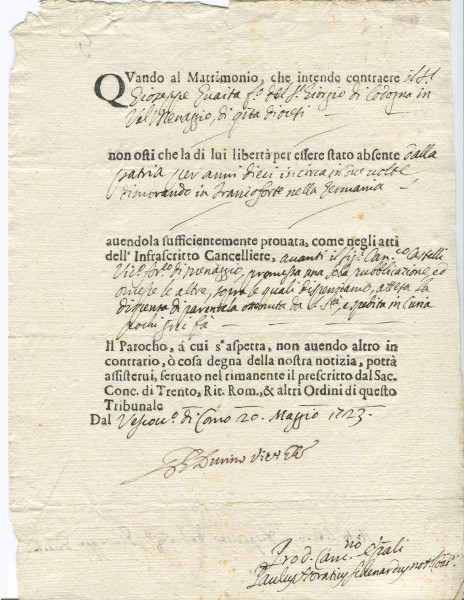 QVando al Matrimonio, che intende contraere il S.r
Gioseppe Guaita f.o del S.r Giorgio di Codogna in
Val Menaggio, di q.ta diocesi
non osti che la di lui libertà per essere stato absente dalla
patria per anni dieci in circa in due volte
dimorando in Francoforte nella Germania
auendola sufficientemente prouata, come negli atti
dell' Infrascritto Cancelliere, auanti il Sig.r Can.co Castelli
Vic.o for.o di Menaggio, premessa una sola pubblicazione, ed
omesse le altre, sopra le quali dispensiamo, attesa la
dispensa di parentela ottenuta da S. S.tà, e spedita in Curia
pochi fa
Il Parocho, à cui s'aspetta, non auendo altro in
contrario, ò cosa degna della nostra notizia, potrà
assisterui, seruato nel rimanente il prescritto dal Sac.
Conc. di Trento, Rit. Rom., & altri Ordini di questo
Tribunale
Dal Vescou.o di Como 20. Maggio 1723.
Durino Vic.
Prod. Canc.
Paulus Horatius not.